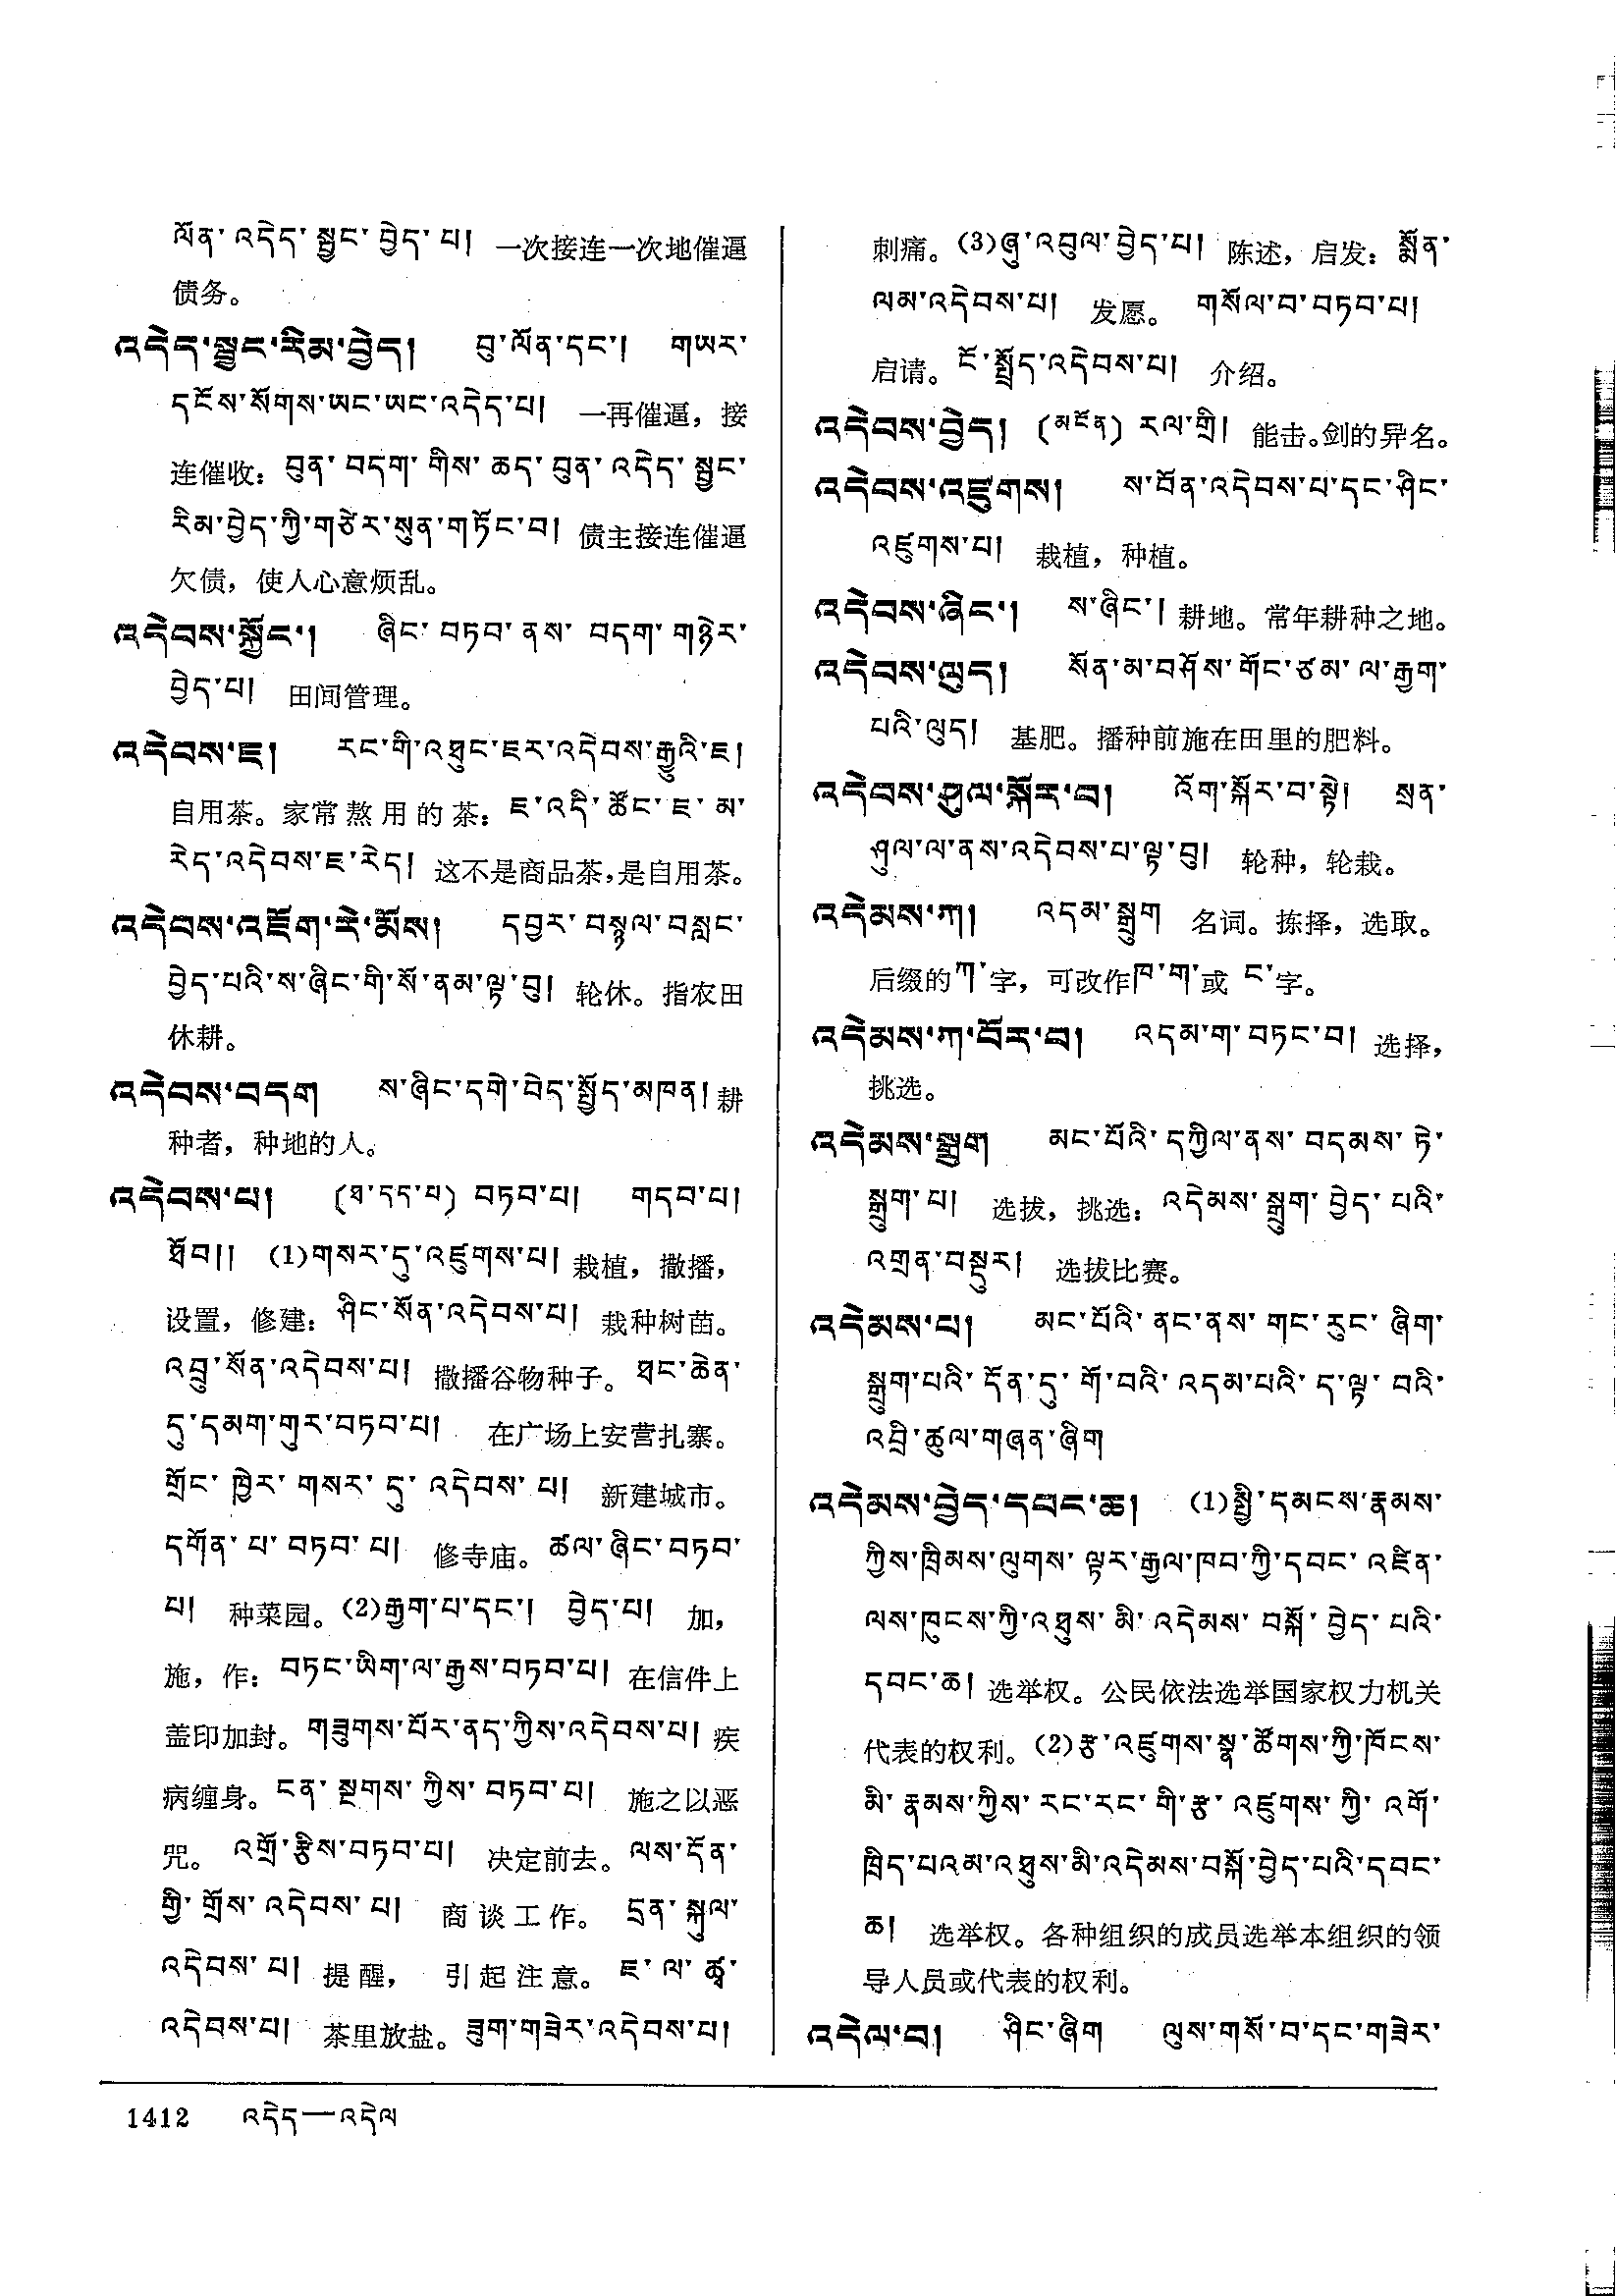 ལོན་འདེད་སྦྱང་བྱེད་པ། 一次接连一次地催逼
债务。
འདེད་སྦྱང་རིམ་བྱེད། བུ་ལོན་དང་། གཡར་
དངོས་སོགས་ཡང་ཡང་འདེད་པ། 一再催逼，接
连催收：བུན་བདག་གིས་ཆད་བུན་འདེད་སྦྱང་
རིམ་བྱེད་ཀྱི་གཙེར་སུན་གཏོང་བ། 债主接连催逼
欠债，使人心意烦乱。
འདེབས་སྐྱོང་། ཞིང་བཏབ་ནས་བདག་གཉེར་
བྱེད་པ། 田间管理。
འདེབས་ཇ། རང་གི་འཐུང་ཇར་འདེབས་རྒྱུའི་ཇ།
自用茶。家常熬用的茶：ཇ་འདི་ཚོང་ཇ་མ་
རེད་འདེབས་ཇ་རེད། 这不是商品茶，是自用茶。
འདེབས་འཇོག་རེ་མོས། དབྱར་བསྙལ་བསླང་
བྱེད་པའི་ས་ཞིང་གི་སོ་ནམ་ལྟ་བུ། 轮休。指农田
休耕。
འདེབས་བདག ས་ཞིང་དགེ་བེད་སྤྱོད་མཁན། 耕
种者，种地的人。
འདེབས་པ། (ཐ་དད་པ) བཏབ་པ། གདབ་པ།
ཐོབ།། (1)གསར་དུ་འཛུགས་པ། 栽植，撒播，
设置，修建：ཤིང་སོན་འདེབས་པ། 栽种树苗。
འབྲུ་སོན་འདེབས་པ། 撒播谷物种子。ཐང་ཆེན་
དུ་དམག་གུར་བཏབ་པ། 在广场上安营扎寨。
གྲོང་ཁྱེར་གསར་དུ་འདེབས་པ། 新建城市。
དགོན་པ་བཏབ་པ། 修寺庙。ཚལ་ཞིང་བཏབ་
པ། 种菜园。(2)རྒྱག་པ་དང་། བྱེད་པ། 加，
施，作：བཏང་ཡིག་ལ་རྒྱས་བཏབ་པ། 在信件上
盖印加封。གཟུགས་པོར་ནད་ཀྱིས་འདེབས་པ། 疾
病缠身。ངན་སྔགས་ཀྱིས་བཏབ་པ། 施之以恶
咒。འགྲོ་རྩིས་བཏབ་པ། 决定前去。ལས་དོན་
གྱི་གྲོས་འདེབས་པ། 商谈工作。དྲན་སྐུལ་
འདེབས་པ། 提醒，引起注意。ཇ་ལ་ཚྭ་
འདེབས་པ། 茶里放盐。ཟུག་གཟེར་འདེབས་པ།
刺痛。(3)ཞུ་འབུལ་བྱེད་པ། 陈述，启发：སྨོན་
ལམ་འདེབས་པ། 发愿。གསོལ་བ་བཏབ་པ།
启请。ངོ་སྤྲོད་འདེབས་པ། 介绍。
འདེབས་བྱེད། (མངོན) རལ་གྲི། 能击。剑的异名。
འདེབས་འཛུགས། ས་བོན་འདེབས་པ་དང་ཤིང་
འཛུགས་པ། 栽植，种植。
འདེབས་ཞིང་། ས་ཞིང་། 耕地。常年耕种之地。
འདེབས་ལུད། སོན་མ་བཤོས་གོང་ཙམ་ལ་རྒྱག་
པའི་ལུད། 基肥。播种前施在田里的肥料。
འདེབས་ཤུལ་སྐོར་བ། འོག་སྐོར་བ་སྟེ། སྲན་
ཤུལ་ལ་ནས་འདེབས་པ་ལྟ་བུ། 轮种，轮栽。
འདེམས་ཀ། འདམ་སྒྲུག 名词。拣择，选取。
后缀的ཀ་字，可改作ཁ་ག་或 ང་字。
འདེམས་ཀ་བོར་བ། འདམ་ག་བཏང་བ། 选择，
挑选。
འདེམས་སྒྲུག མང་པོའི་དཀྱིལ་ནས་བདམས་ཏེ་
སྒྲུག་པ། 选拔，挑选：འདེམས་སྒྲུག་བྱེད་པའི་
འགྲན་བསྡུར། 选拔比赛。
འདེམས་པ། མང་པོའི་ནང་ནས་གང་རུང་ཞིག་
སྒྲུག་པའི་དོན་དུ་གོ་བའི་འདམ་པའི་ད་ལྟ་བའི་
འབྲི་ཚུལ་གཞན་ཞིག
འདེམས་བྱེད་དབང་ཆ། (1)སྤྱི་དམངས་རྣམས་
ཀྱིས་ཁྲིམས་ལུགས་ལྟར་རྒྱལ་ཁབ་ཀྱི་དབང་འཛིན་
ལས་ཁུངས་ཀྱི་འཐུས་མི་འདེམས་བསྐོ་བྱེད་པའི་
དབང་ཆ། 选举权。公民依法选举国家权力机关
代表的权利。(2)རྩ་འཛུགས་སྣ་ཚོགས་ཀྱི་ཁོངས་
མི་རྣམས་ཀྱིས་རང་རང་གི་རྩ་འཛུགས་ཀྱི་འགོ་
ཁྲིད་པའམ་འཐུས་མི་འདེམས་བསྐོ་བྱེད་པའི་དབང་
ཆ། 选举权。各种组织的成员选举本组织的领
导人员或代表的权利。
འདེལ་བ། ཤིང་ཞིག ལུས་གསོ་བ་དང་གཟེར་
1412 འདེད—འདེལ